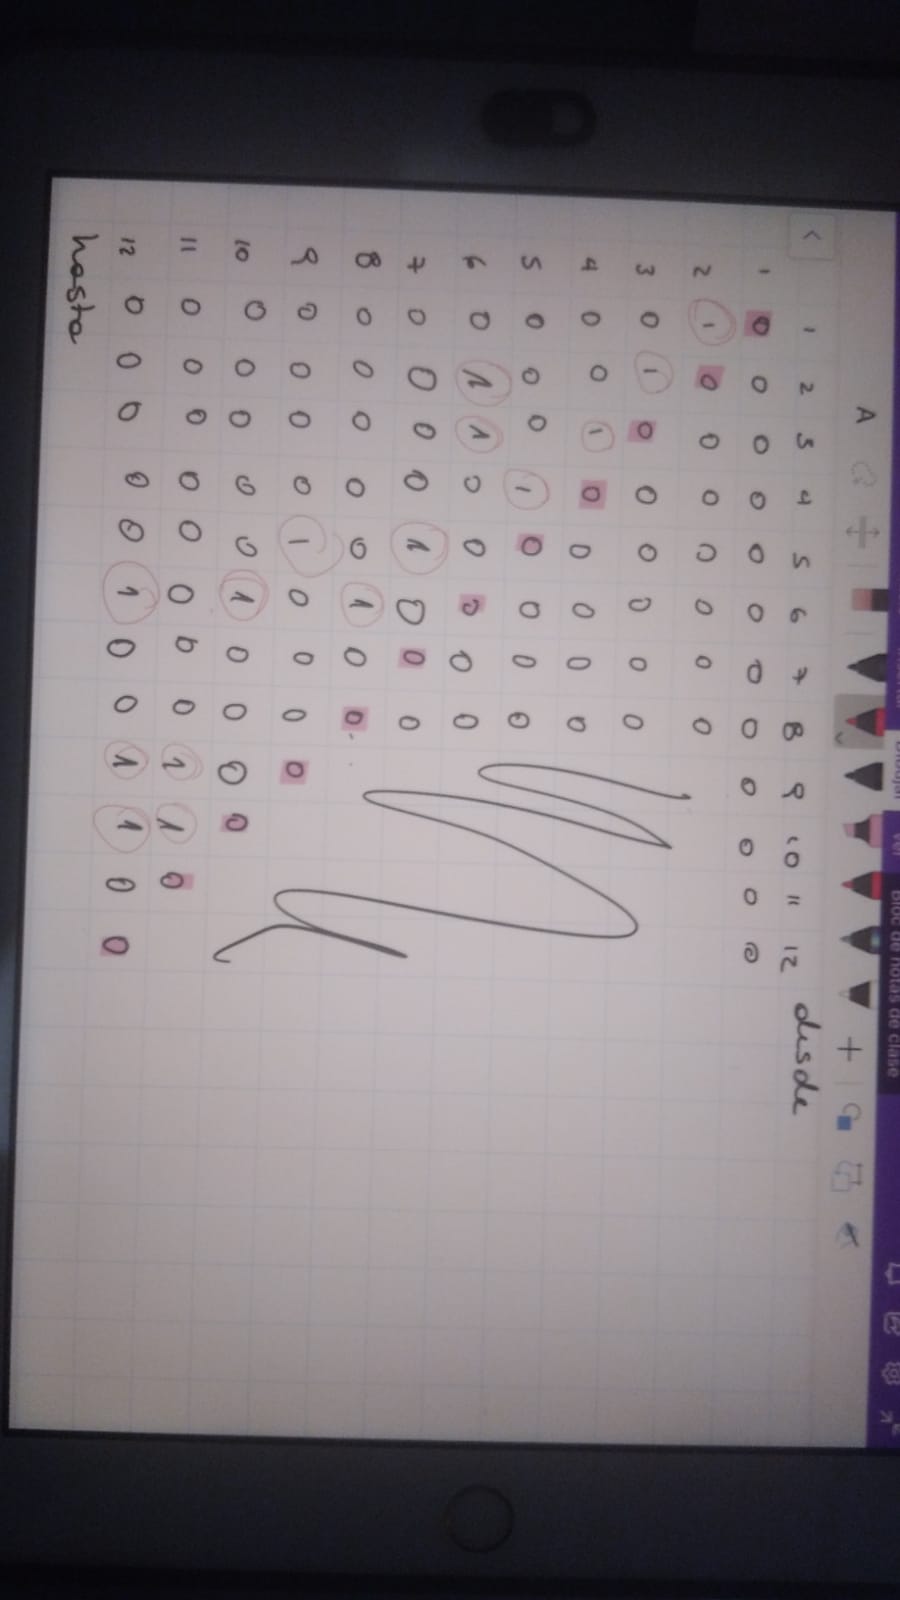 Insertar Dibujar Ver Bloc de notas de clase
A
1 2 3 4 5 6 7 8 9 10 11 12 desde
1 0 0 0 0 0 0 0 0 0 0 0 0
2 1 0 0 0 0 0 0 0
3 0 1 0 0 0 0 0 0
4 0 0 1 0 0 0 0 0
5 0 0 0 1 0 0 0 0
6 0 1 1 0 0 0 0 0
7 0 0 0 0 1 0 0 0
8 0 0 0 0 0 1 0 0
9 0 0 0 0 1 0 0 0 0
10 0 0 0 0 0 1 0 0 0 0
11 0 0 0 0 0 0 0 0 1 1 0
12 0 0 0 0 0 1 0 0 1 1 0 0
hasta